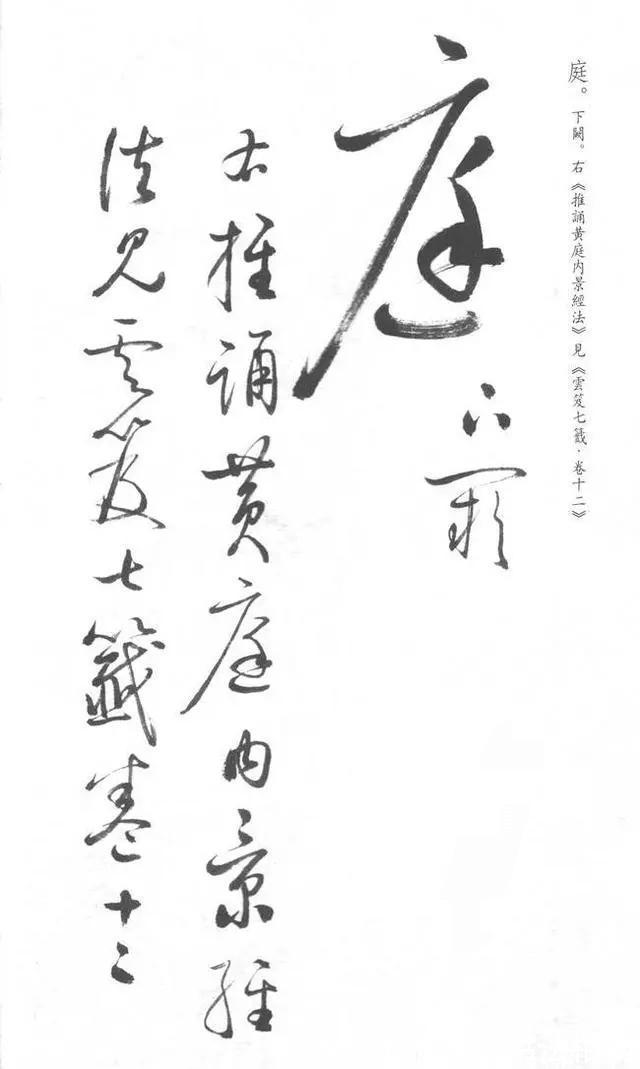 庭。下闕。右《推誦黃庭內景經法》見《雲笈七籤·卷十二》
庭
下闕
右推誦黃庭內景經
法見雲笈七籤卷十二